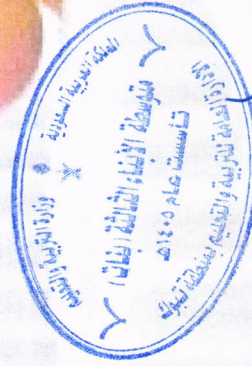 المملكة العربية السعودية
وزارة التربية والتعليم
للتربية والتعليم بمنطقة تبوك
متوسطة الأبناء الثالثة
تأسست عام ١٤٠٥هـ